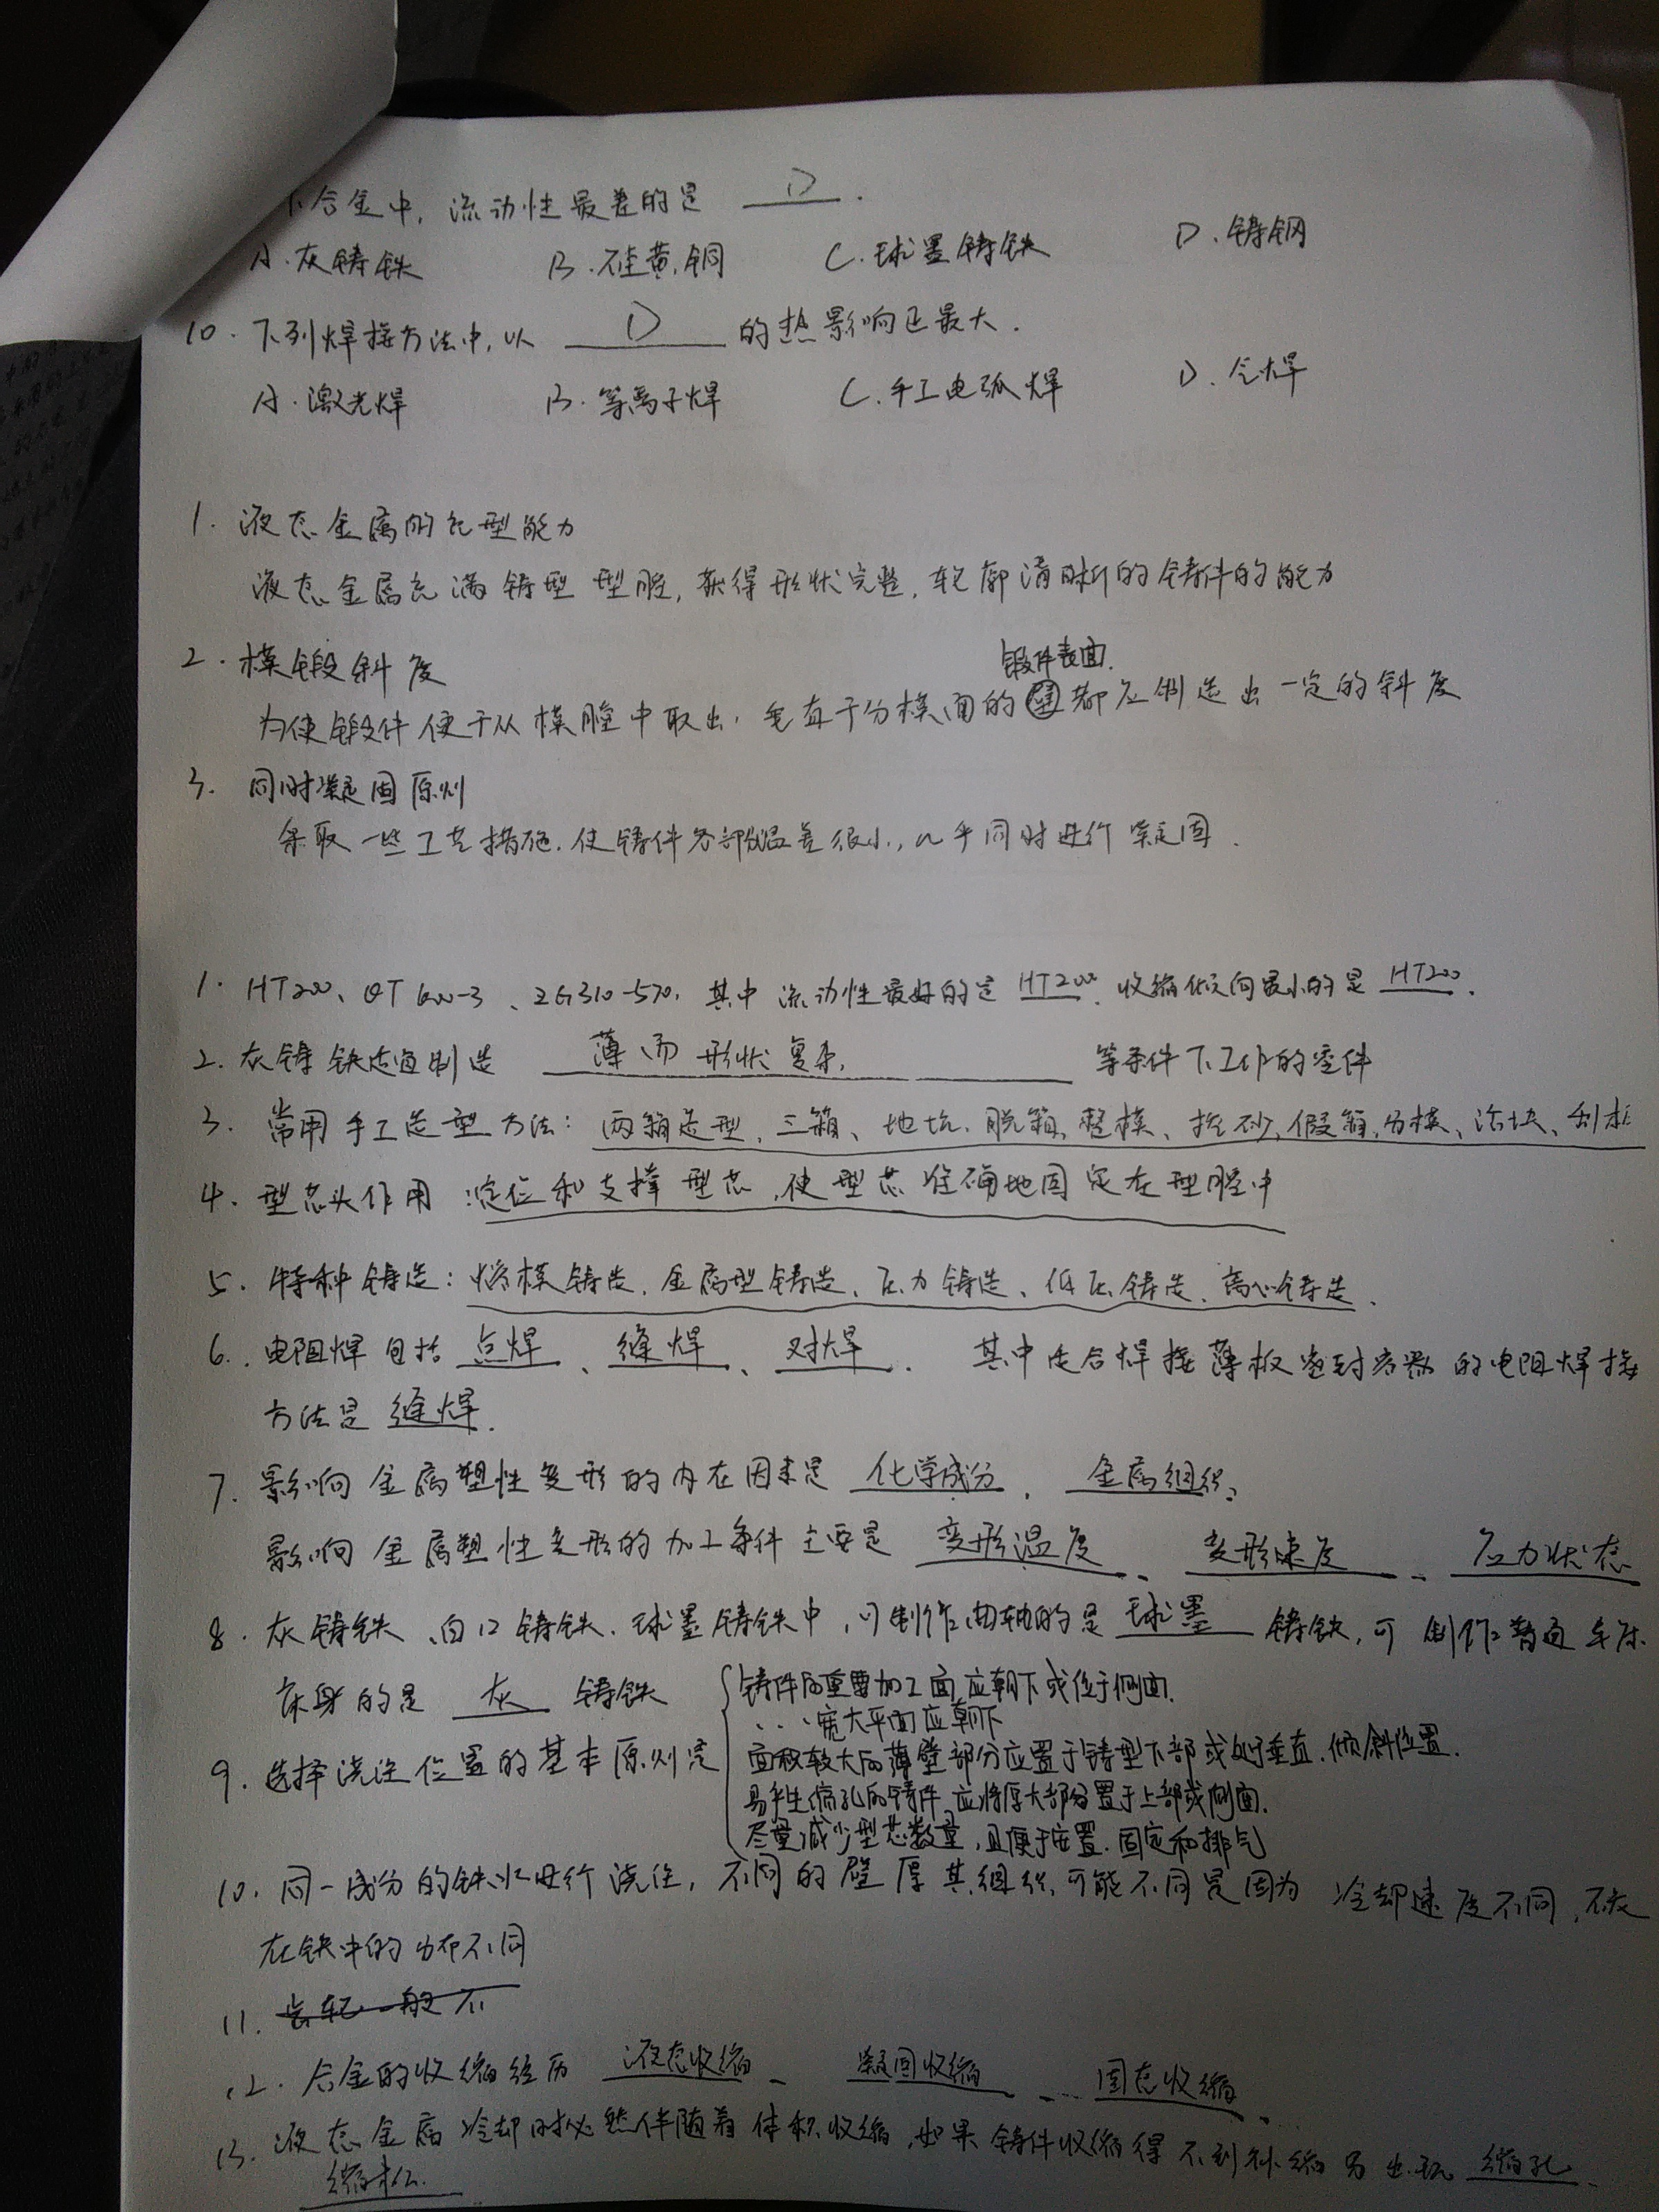 下合金中，流动性最差的是 D .
A.灰铸铁 B.硅黄铜 C.球墨铸铁 D.铸钢
10.下列焊接方法中，以 D 的热影响区最大.
A.激光焊 B.等离子焊 C.手工电弧焊 D.气焊
1.液态金属的充型能力
液态金属充满铸型型腔，获得形状完整，轮廓清晰的铸件的能力
2.模锻斜度
锻件表面.
为使锻件便于从模膛中取出，垂直于分模面的 都应制造出一定的斜度
3.同时凝固原则
采取一些工艺措施，使铸件各部分温差很小，几乎同时进行凝固.
1. HT200、QT600-3、ZG310-570，其中流动性最好的是 HT200，收缩倾向最小的是 HT200.
2.灰铸铁适宜制造 薄而形状复杂， 等条件下工作的零件
3.常用手工造型方法：两箱造型、三箱、地坑、脱箱、整模、挖砂、假箱、分模、活块、刮板
4.型芯头作用：定位和支撑型芯，使型芯准确地固定在型腔中
5.特种铸造：熔模铸造、金属型铸造、压力铸造、低压铸造、离心铸造.
6.电阻焊包括 点焊、缝焊、对焊. 其中适合焊接薄板密封容器的电阻焊接
方法是 缝焊.
7.影响金属塑性变形的内在因素是 化学成分、金属组织.
影响金属塑性变形的加工条件主要是 变形温度、变形速度、应力状态
8.灰铸铁、白口铸铁、球墨铸铁中，可制作曲轴的是 球墨 铸铁，可制作普通车床
床身的是 灰 铸铁
铸件的重要加工面应朝下或位于侧面.
...宽大平面应朝下
9.选择浇注位置的基本原则是 面积较大的薄壁部分应置于铸型下部或处于垂直.倾斜位置.
易产生缩孔的铸件，应将厚大部分置于上部或侧面.
尽量减少型芯数量，且便于安置.固定和排气
10.同一成分的铁水进行浇注，不同的壁厚其组织可能不同是因为 冷却速度不同，石墨
在铁中的分布不同
11. 齿轮一般不
12.合金的收缩经历 液态收缩、凝固收缩、固态收缩.
13.液态金属冷却时必然伴随着体积收缩，如果铸件收缩得不到补缩 出现 缩孔、
缩松.